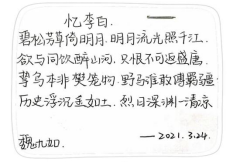 忆李白.
碧松芳草倚明月.明月流光照千江.
欲与同饮醉山河.只恨不可返盛唐.
鸷鸟本非樊笼物.野马谁敢傅羁疆.
历史浮沉金如土.烈日深渊一清凉
魏九如
—2021.3.24.